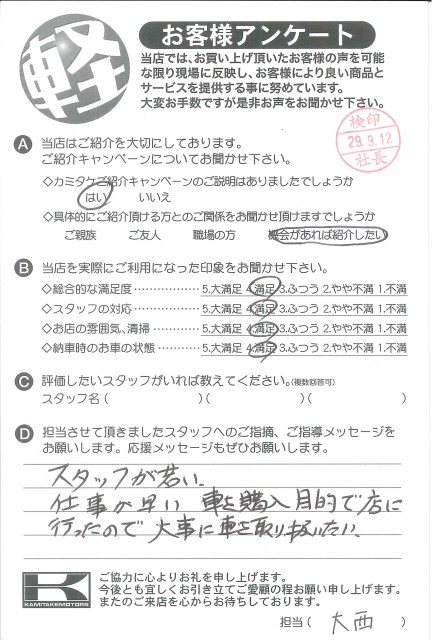 軽
お客様アンケート
当店では、お買い上げ頂いたお客様の声を可能
な限り現場に反映し、お客様により良い商品と
サービスを提供する事に努めています。
大変お手数ですが是非お声をお聞かせ下さい。
検印
29.9.12
社長
A 当店はご紹介を大切にしております。
ご紹介キャンペーンについてお聞かせ下さい。
◇カミタケご紹介キャンペーンのご説明はありましたでしょうか
はい いいえ
◇具体的にご紹介頂ける方とのご関係をお聞かせ頂けますでしょうか
ご親族 ご友人 職場の方 機会があれば紹介したい
B 当店を実際にご利用になった印象をお聞かせ下さい。
◇総合的な満足度 ⋯⋯⋯⋯⋯ 5.大満足 4.満足 3.ふつう 2.やや不満 1.不満
◇スタッフの対応 ⋯⋯⋯⋯⋯ 5.大満足 4.満足 3.ふつう 2.やや不満 1.不満
◇お店の雰囲気、清掃 ⋯⋯⋯ 5.大満足 4.満足 3.ふつう 2.やや不満 1.不満
◇納車時のお車の状態 ⋯⋯⋯ 5.大満足 4.満足 3.ふつう 2.やや不満 1.不満
C 評価したいスタッフがいれば教えてください。(複数回答可)
スタッフ名( )( )( )
D 担当させて頂きましたスタッフへのご指摘、ご指導メッセージを
お願いします。応援メッセージもぜひお願いします。
スタッフが若い。
仕事が早い 車を購入目的で店に
行ったので大事に車を取り扱いたい。
K
KAMITAKEMOTORS
ご協力に心よりお礼を申し上げます。
今後とも宜しくお引き立てご愛顧の程お願い申し上げます。
またのご来店を心からお待ちしております。
担当( 大西 )